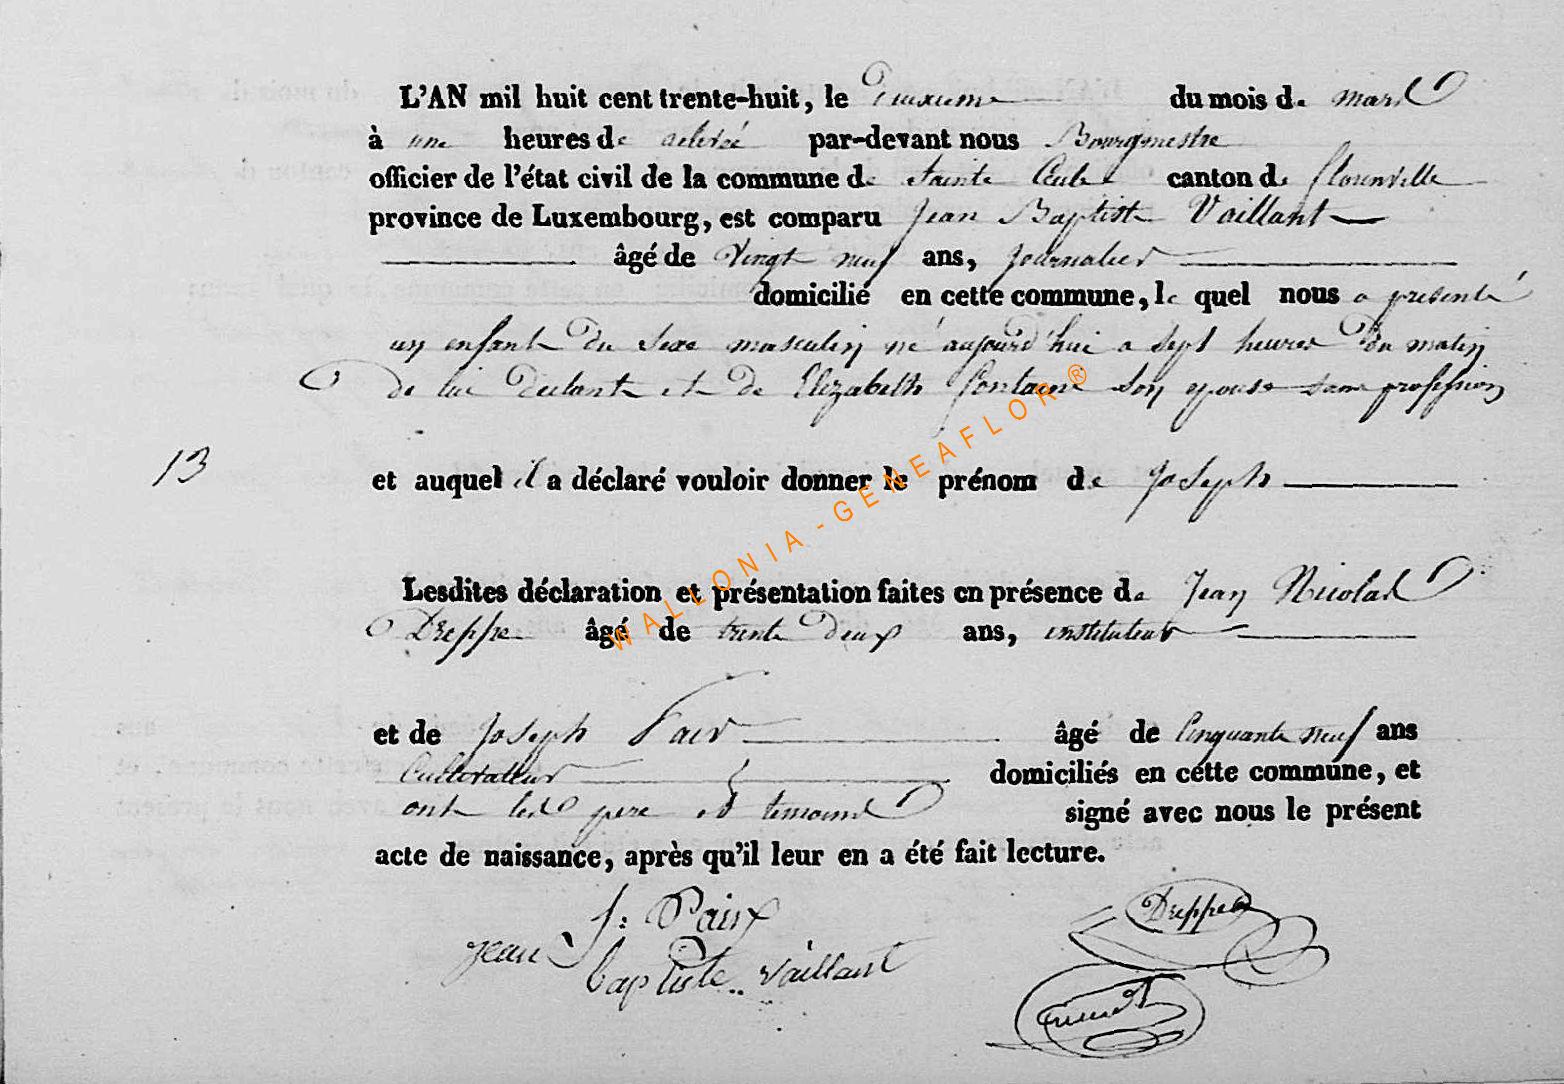 L'AN mil huit cent trente-huit, le deuxieme du mois de mars
à une heures de relevée par-devant nous Bourgmestre
officier de l'état civil de la commune de Sainte Cecile canton de florenville
province de Luxembourg, est comparu Jean Baptiste Vaillant
âgé de Vingt neuf ans, journalier
domicilié en cette commune, le quel nous a presenté
un enfant du sexe masculin né aujourd'hui a sept heures du matin
de lui declarant et de Elizabeth fontaine son epouse sans profession
13
et auquel il a déclaré vouloir donner le prénom de Joseph
Lesdites déclaration et présentation faites en présence de Jean Nicolas
Dreppe âgé de trente deux ans, instituteur
et de Joseph âgé de Cinquante neuf ans
Cultivateur domiciliés en cette commune, et
ont les pere et temoins signé avec nous le présent
acte de naissance, après qu'il leur en a été fait lecture.
J: Paix Dreppe
Jean baptiste Vaillant
WALLONIA-GENEAFLOR®